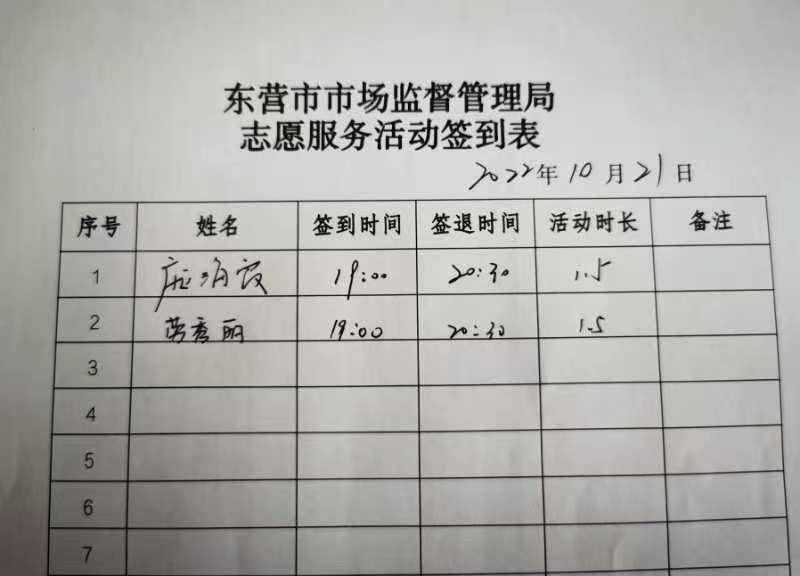 东营市市场监督管理局
志愿服务活动签到表
2022年10月21日
序号 姓名 签到时间 签退时间 活动时长 备注
1 19:00 20:30 1.5
2 秀丽 19:00 20:30 1.5
3
4
5
6
7